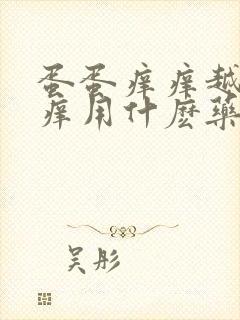 蛋蛋痒痒越
痒用什麽藥
吴彤